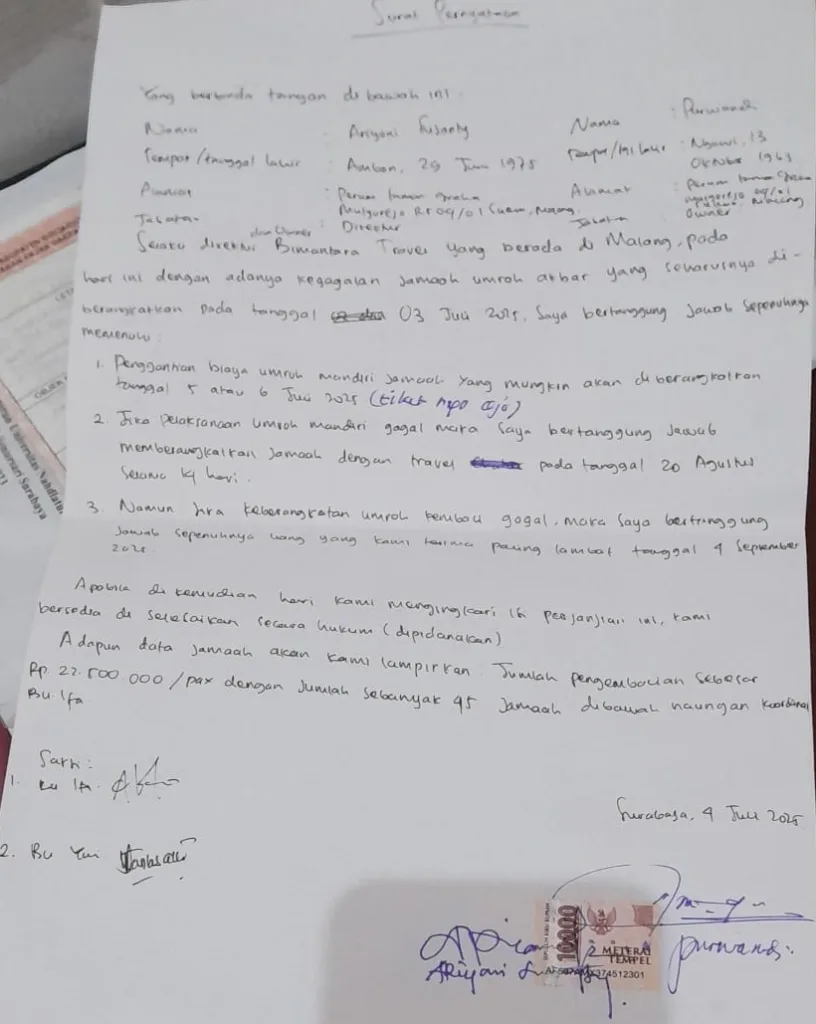 Surat Pernyataan
Yang bertanda tangan di bawah ini :
Nama : Ariyani Susanty Nama : Purwandi
Tempat/tanggal lahir : Ambon, 29 Juni 1975 Tempat/tgl lahir : Ngawi, 13 Oktober 1963
Alamat : Perum taman graha Mulyorejo RT 09/01 Sukun, Malang. Alamat : Perum taman Graha Mulyorejo 09/01 Malang
Jabatan : Direktur Jabatan Owner
dan Owner
Selaku direktur Bimantara Travel yang berada di Malang, pada
hari ini dengan adanya kegagalan jamaah umroh akbar yang seharusnya di-
berangkatkan pada tanggal 03 Juli 2025, Saya bertanggung jawab sepenuhnya
memenuhi :
1. Penggantian biaya umroh mandiri jamaah yang mungkin akan diberangkatkan
tanggal 5 atau 6 Juli 2025 (tiket aja)
2. Jika pelaksanaan umroh mandiri gagal maka saya bertanggung jawab
memberangkatkan jamaah dengan travel pada tanggal 20 Agustus
selama 14 hari.
3. Namun jika keberangkatan umroh kembali gagal, maka saya bertanggung
jawab sepenuhnya uang yang kami terima paling lambat tanggal 4 September
2025.
Apabila di kemudian hari kami mengingkari isi perjanjian ini, kami
bersedia di selesaikan secara hukum (dipidanakan)
Adapun data jamaah akan kami lampirkan. Jumlah pengembalian sebesar
Rp. 27.500.000 /pax dengan jumlah sebanyak 95 jamaah dibawah naungan koordinator
Bu. Ifa
Saksi :
1. Bu Ifa.
2. Bu Yuni
Surabaya, 4 Juli 2025
10000
METERAI
TEMPEL
374512301
Ariyani Susanty
Purwandi.